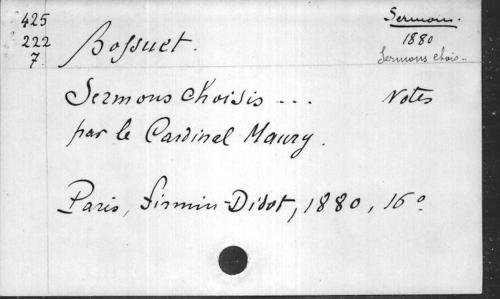 425
222
7.
Bossuet.
Sermons.
1880
Sermons chois..
Sermons Choisis ... Notes
par le Cardinal Maury.
Paris, Firmin-Didot, 1880, 16°